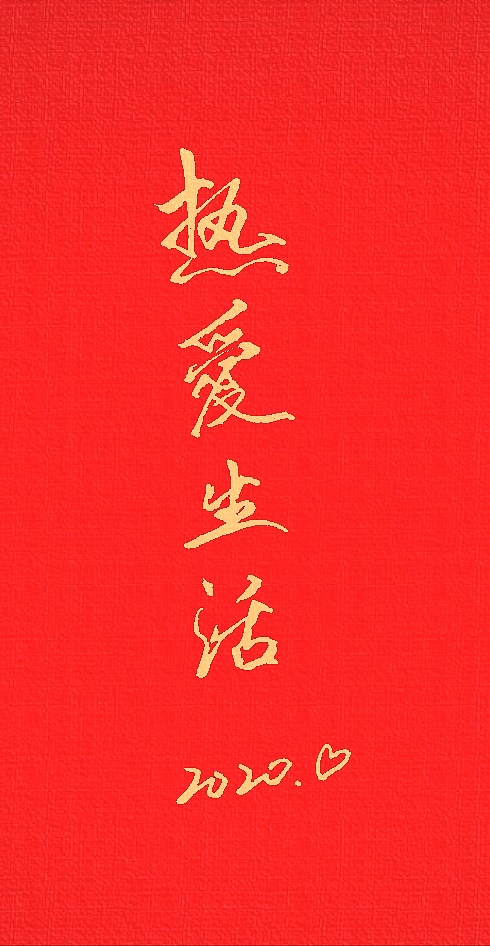 热爱生活
2020.♡